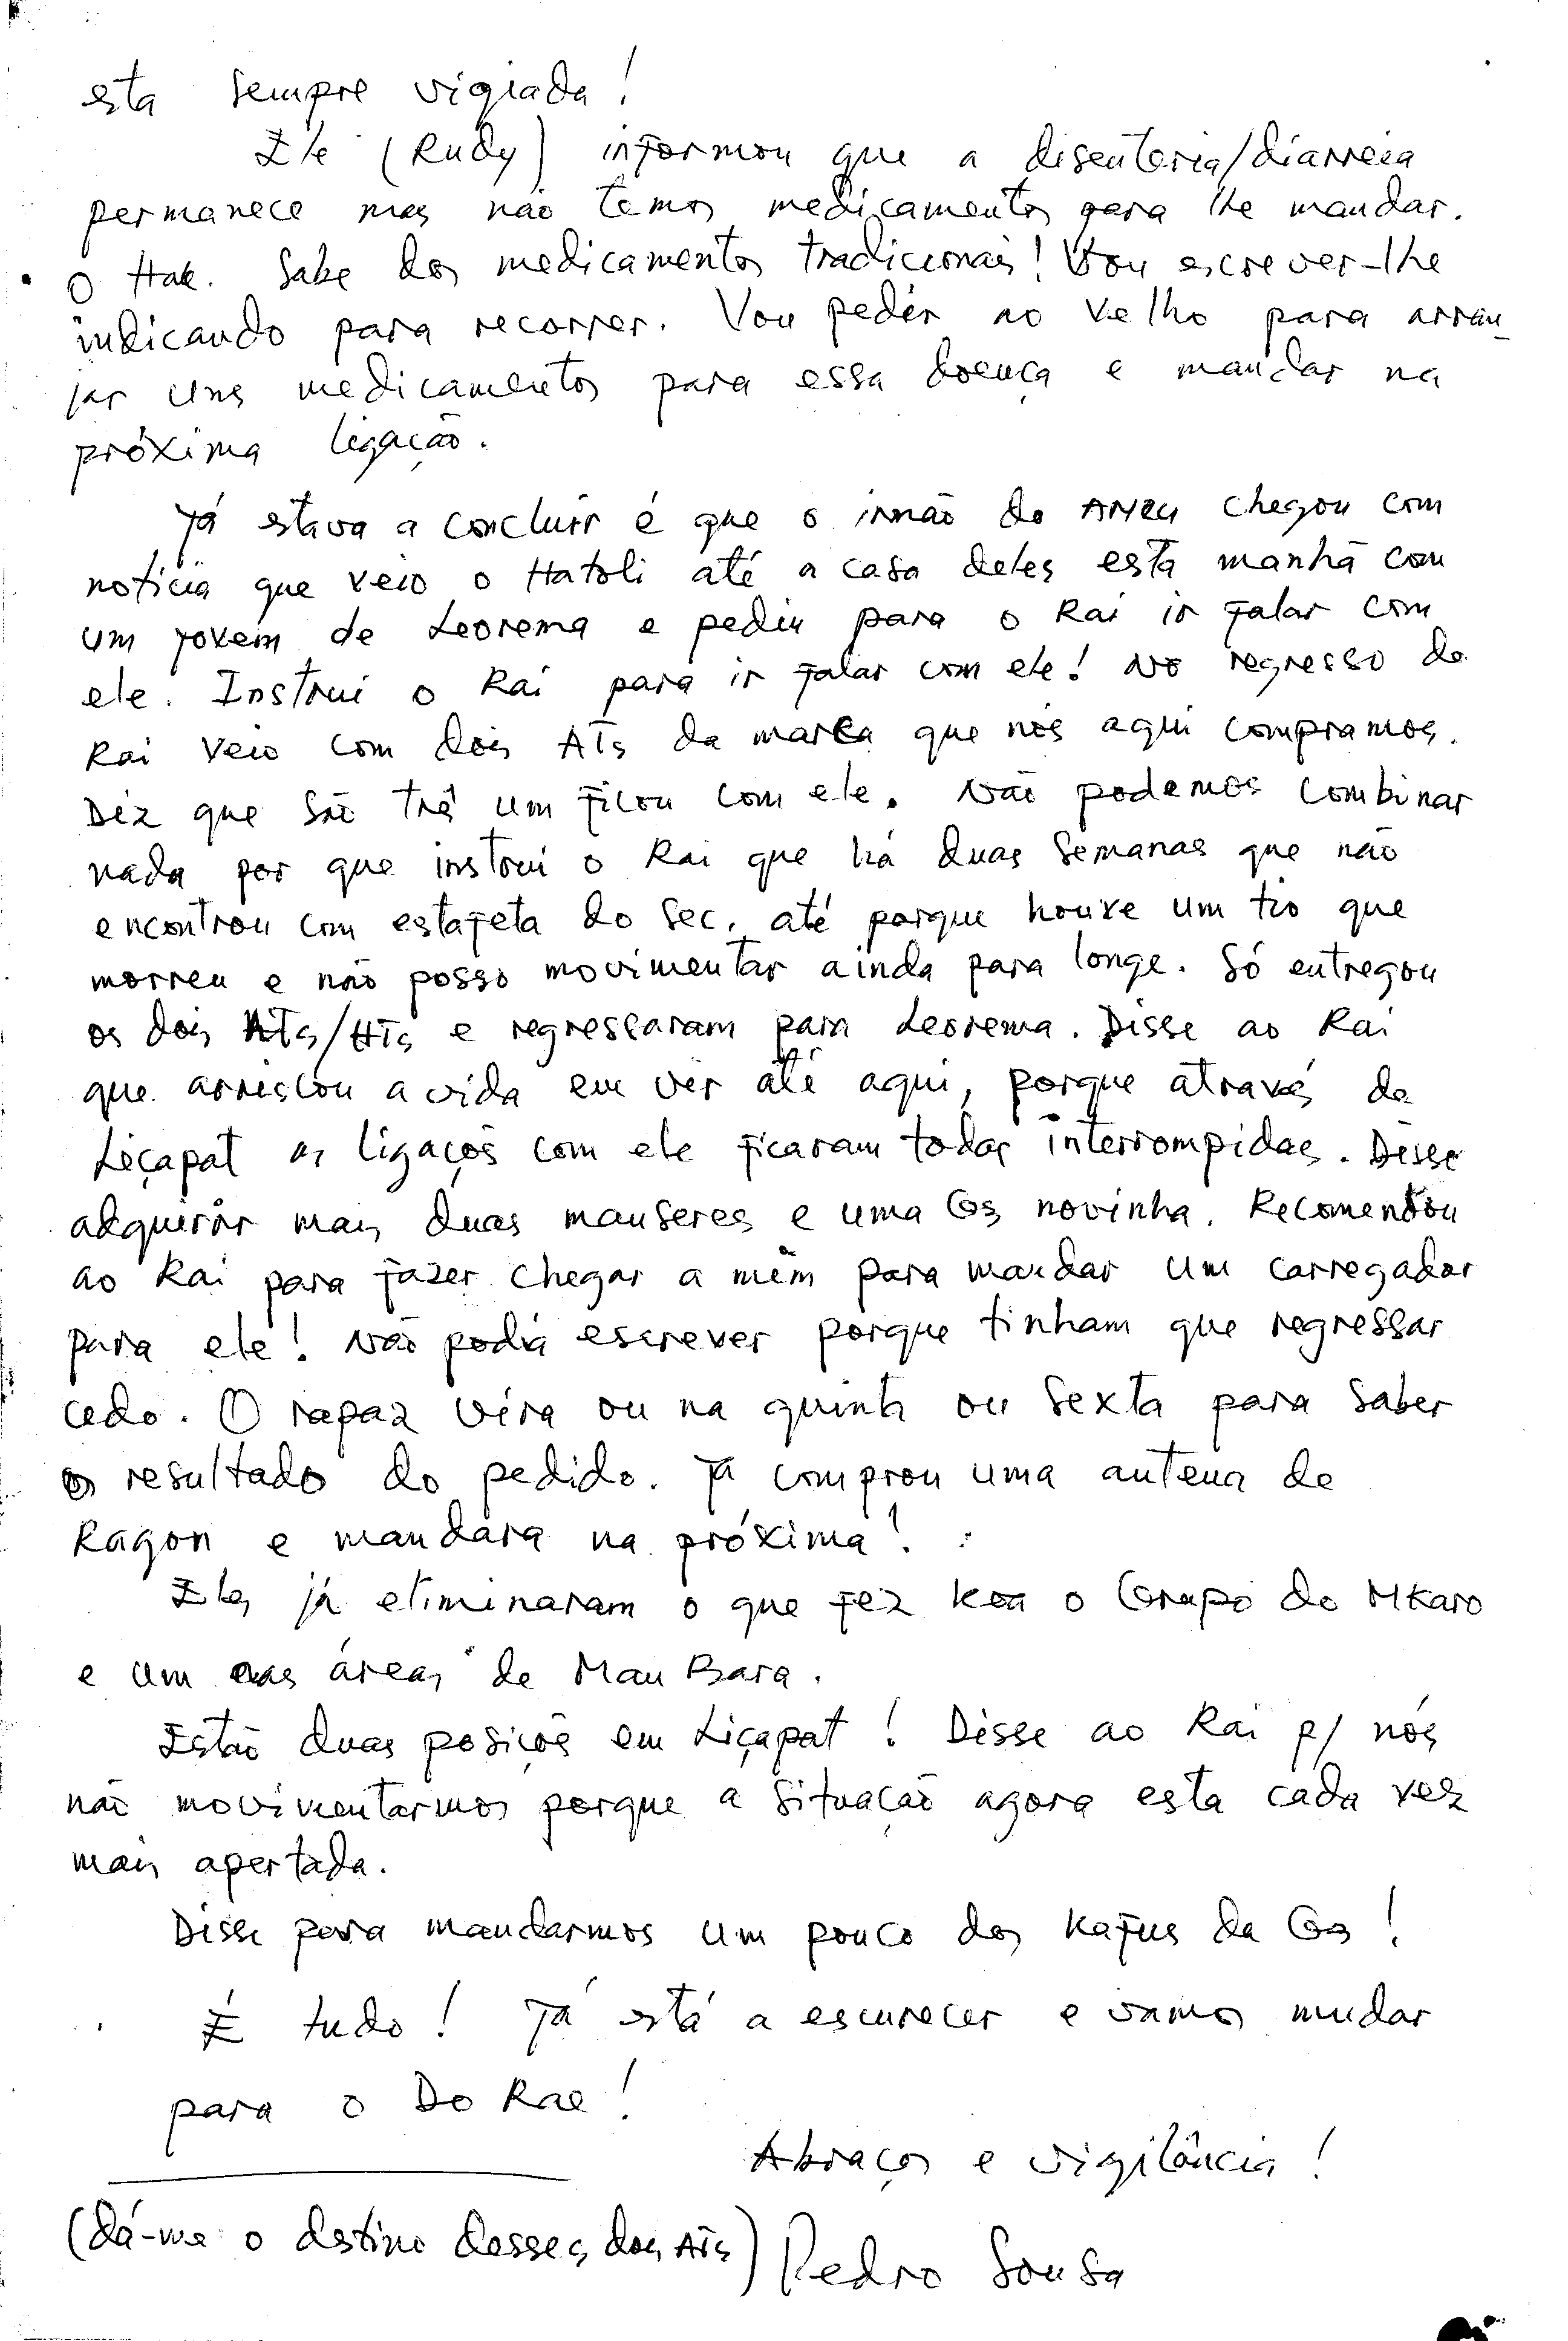 esta sempre vigiada!
Ele (Rudy) informou que a disenteria/diarreia
permanece mas não temos medicamentos para lhe mandar.
O Hak. sabe dos medicamentos tradicionais! Vou escrever-lhe
indicando para recorrer. Vou pedir ao Velho para arran-
jar uns medicamentos para essa doença e mandar na
próxima ligação.
Já estava a concluir é que o irmão do chegou com
notícia que veio o Hatoli até a casa deles esta manhã com
um jovem de Leorema e pediu para o Rai ir falar com
ele. Instrui o Rai para ir falar com ele! No regresso do
Rai veio com dois ATs da marca que nós aqui compramos.
Diz que são três um ficou com ele. Não podemos combinar
nada por que instrui o Rai que há duas semanas que não
encontrou com estafeta do Sec, até porque houve um tio que
morreu e não posso movimentar ainda para longe. Só entregou
os dois ATs/HTs e regressaram para Leorema. Disse ao Rai
que arriscou a vida em vir até aqui, porque através de
Liçapat as ligações com ele ficaram todas interrompidas. Disse
adquirir mais duas mauseres e uma G3 novinha. Recomendou
ao Rai para fazer chegar a mim para mandar um carregador
para ele! Não podia escrever porque tinham que regressar
cedo. O rapaz virá ou na quinta ou sexta para saber
o resultado do pedido. Já comprou uma antena de
Ragon e mandará na próxima!
Eles já eliminaram o que fez o Grupo do MKaro
e um nas áreas de Mau Bara.
Estão duas posições em Liçapat! Disse ao Rai p/ nós
não movimentarmos porque a situação agora esta cada vez
mais apertada.
Disse para mandarmos um pouco dos kafus da G3!
É tudo! Já está a escurecer e vamos mudar
para o Do Rae!
Abraços e vigilância!
(dá-me o destino desses dois ATs) Pedro Sousa